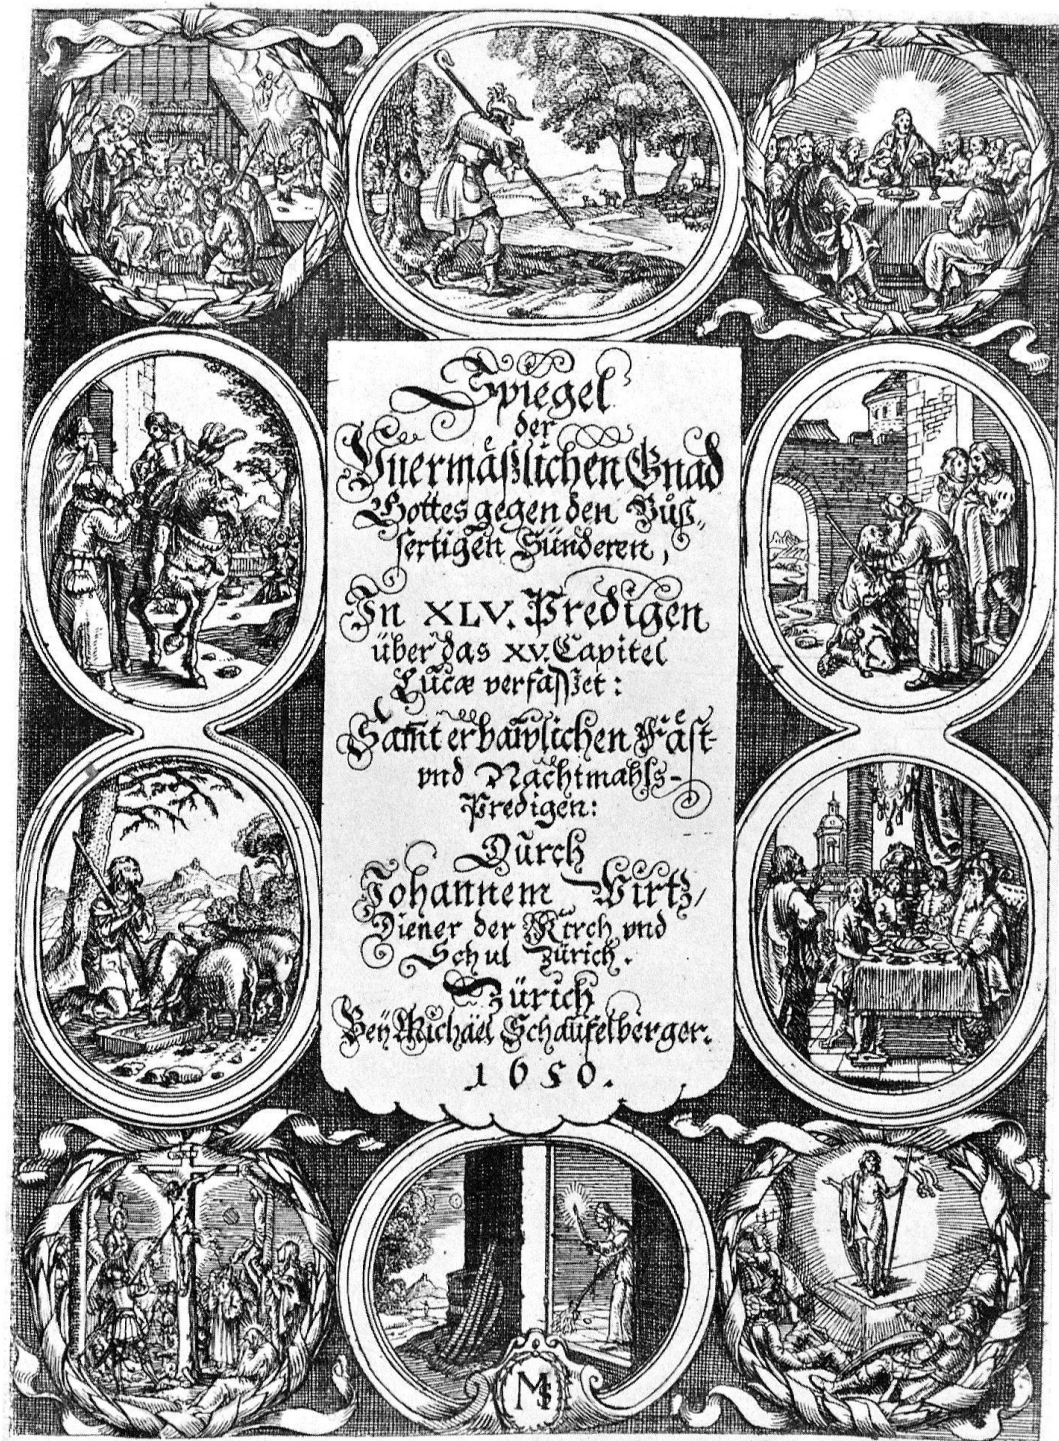 Spiegel
der
Vnermäßlichen Gnad
Gottes gegen den Buͦß„
fertigen Sünderen,
In XLV. Predigen
über das XV. Capitel
Lucæ verfaßet:
Samt erbawlichen Fäst-
vnd Nachtmahls-
Predigen:
Durch
Johannem Wirtz,
Diener der Kirch vnd
Schul Zürich.
Zürich
Beÿ Michäel Schaufelberger.
1650.